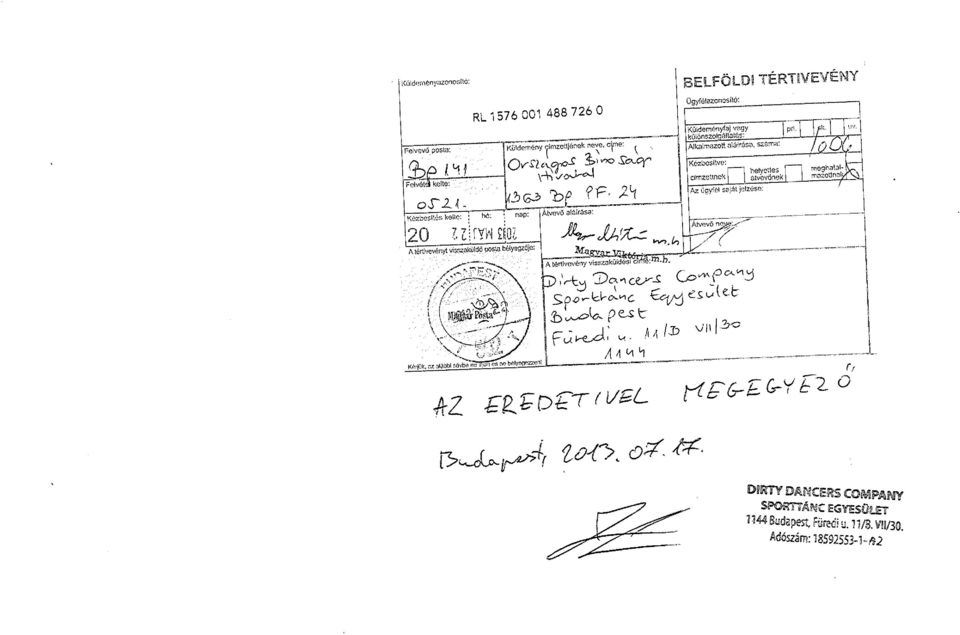 Küldeményazonosító:
RL 1576 001 488 726 0
BELFÖLDI TÉRTIVEVÉNY
Ügyfélazonosító:
Küldeményfaj vagy
különszolgáltatás:
Alkalmazott aláírása, száma:
1006
Kézbesítve:
címzettnek
helyettes
átvevőnek
meghatal-
mazottnak
Az ügyfél saját jelzése:
Átvevő neve:
Felvevő posta:
Bp 141
Felvétel kelte:
0521.
Küldemény címzettjének neve, címe:
Országos Bírósági
Hivatal
1363 Bp PF. 24
Kézbesítés kelte:
hó:
nap:
20
2013 MÁJ 22
Átvevő aláírása:
m.h.
Magyar Viktória m.h.
A tértivevényt visszaküldő posta bélyegzője:
BUDAPEST
Magyar Posta
A tértivevény visszaküldési címe:
Dirty Dancers Company
Sporttánc Egyesület
Budapest
Füredi u. 11/D VII/30
1144
Kérjük, az alábbi sávba ne írjon és ne bélyegezzen!
AZ EREDETIVEL MEGEGYEZŐ
Budapest, 2013. 07. 17.
DIRTY DANCERS COMPANY
SPORTTÁNC EGYESÜLET
1144 Budapest, Füredi u. 11/B. VII/30.
Adószám: 18592553-1-42